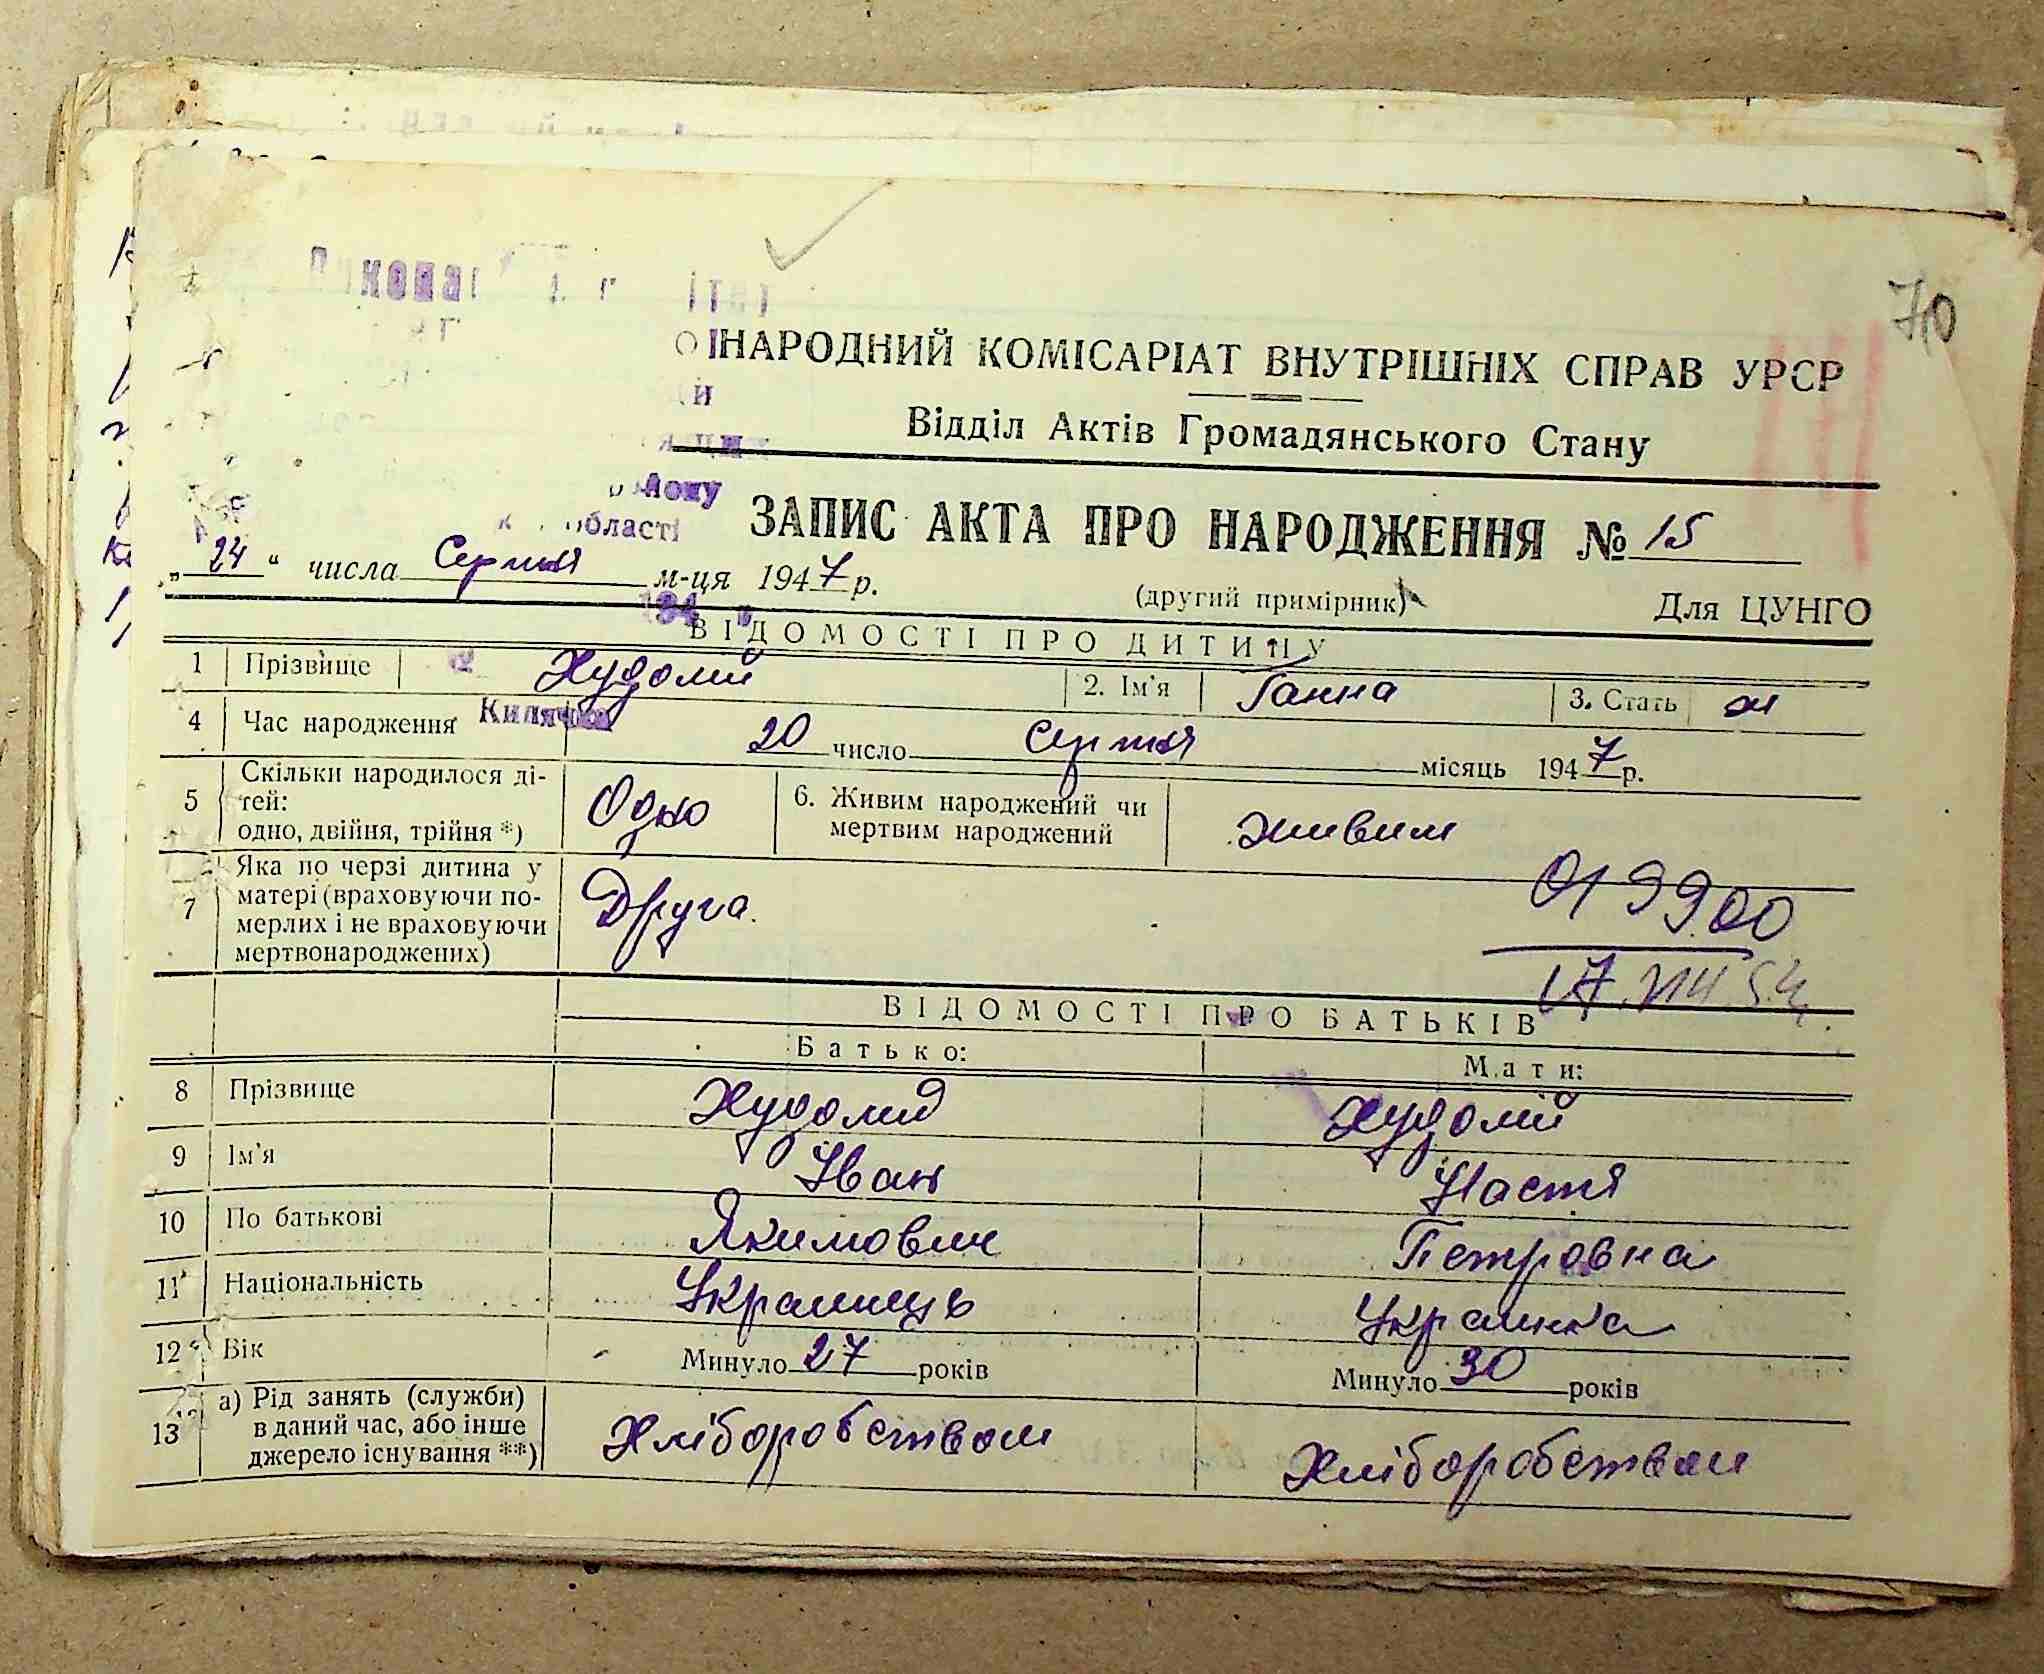 70
НАРОДНИЙ КОМІСАРІАТ ВНУТРІШНІХ СПРАВ УРСР
Відділ Актів Громадянського Стану
області
ЗАПИС АКТА ПРО НАРОДЖЕННЯ № 15
„24" числа Серпня м-ця 1947 р.
(другий примірник)
Для ЦУНГО
ВІДОМОСТІ ПРО ДИТИНУ
1 Прізвище Худолій 2. Ім'я Ганна 3. Стать ж
4 Час народження 20 число Серпня місяць 1947 р.
5 Скільки народилося ді-
тей:
одно, двійня, трійня *) Одно
6. Живим народжений чи
мертвим народжений живим
7 Яка по черзі дитина у
матері (враховуючи по-
мерлих і не враховуючи
мертвонароджених) Друга.
17.VIII 54
ВІДОМОСТІ ПРО БАТЬКІВ
Батько: Мати:
8 Прізвище Худолій Худолій
9 Ім'я Іван Настя
10 По батькові Якимович Петровна
11 Національність Украинець Украинка
12 Вік Минуло 27 років Минуло 30 років
13 а) Рід занять (служби)
в даний час, або інше
джерело існування **) Хліборобством Хліборобством